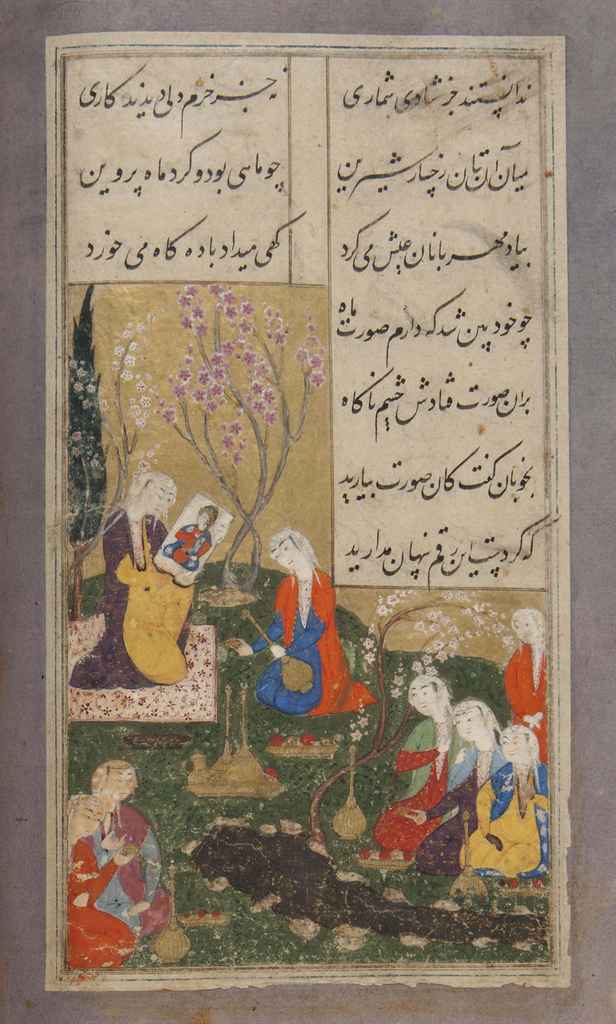 ندانستند جز شادی شماری نه جز خرم دلی دیدند کاری
میان آن بتان رخسار شیرین چو ماهی بود و کرد ماه پروین
بیاد مهربانان عیش می کرد کهی میداد باده کاه می خورد
چو خود بین شد که دارم صورت ماه
بران صورت فتادش چشم ناکاه
بخوبان کفت کان صورت بیارید
که کردست این رقم پنهان مدارید